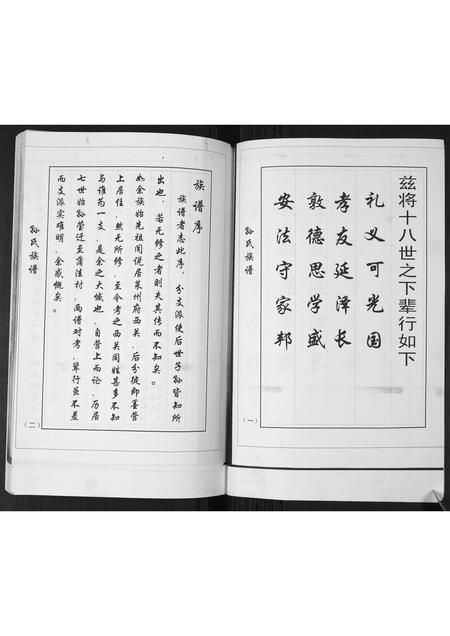 兹将十八世之下辈行如下
礼义可光国
孝友延泽长
敦德思学盛
安法守家邦
孙氏族谱
（一）
族谱序
族谱者志此序，分支派使后世子孙皆知所
出也，若无修之者则失其传而不知矣。
如余族始先祖闻说居莱州府西关，后分徙即墨营
上居住，然无所修，至今考之西关同姓甚多不知
与谁为一支，是余之大憾也，自营上而论，历居
七世始孙营迁至蒲洼村，两谱对考，辈行虽不差
而支派实难明，余感慨矣。
孙氏族谱
（二）